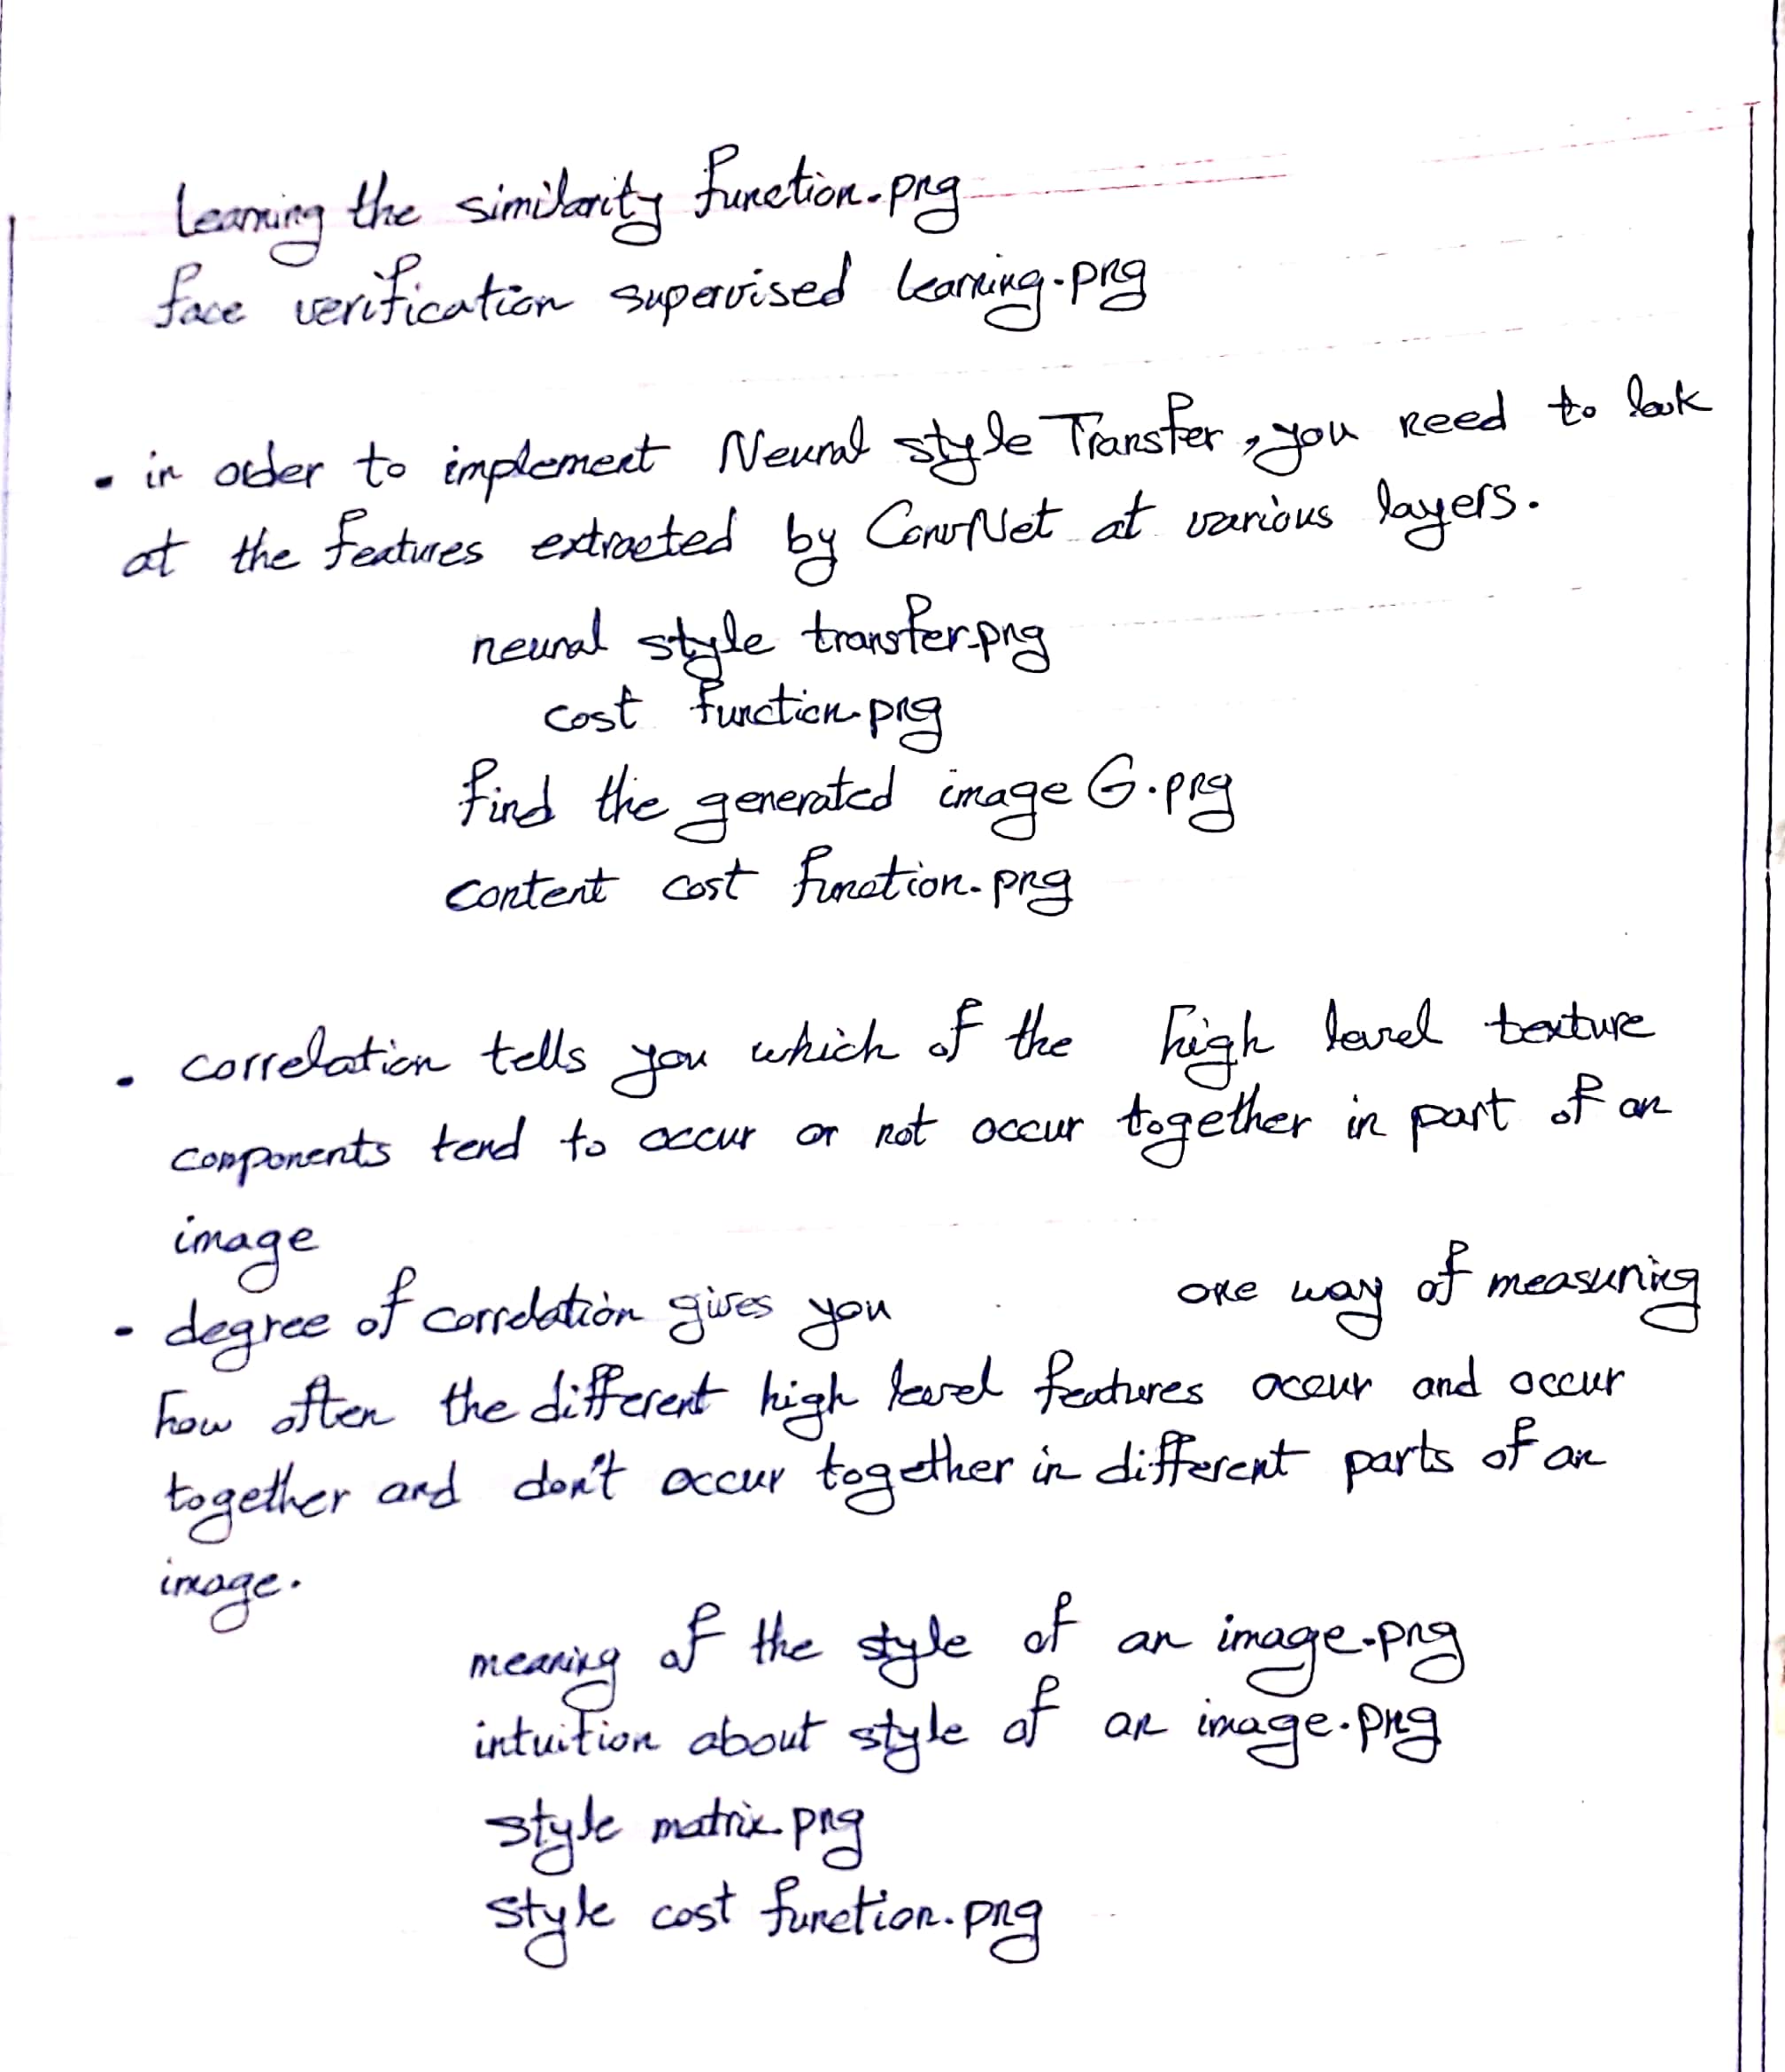 learning the similarity function.png
face verification supervised learning.png
• in oder to implement Neural style Transfer, you need to look
at the features extracted by ConvNet at various layers.
neural style transfer.png
cost function.png
find the generated image G.png
content cost function.png
• correlation tells you which of the high level texture
components tend to occur or not occur together in part of an
image
• degree of correlation gives you one way of measuring
how often the different high level features occur and occur
together and don't occur together in different parts of an
image.
meaning of the style of an image.png
intuition about style of an image.png
style matrix.png
style cost function.png